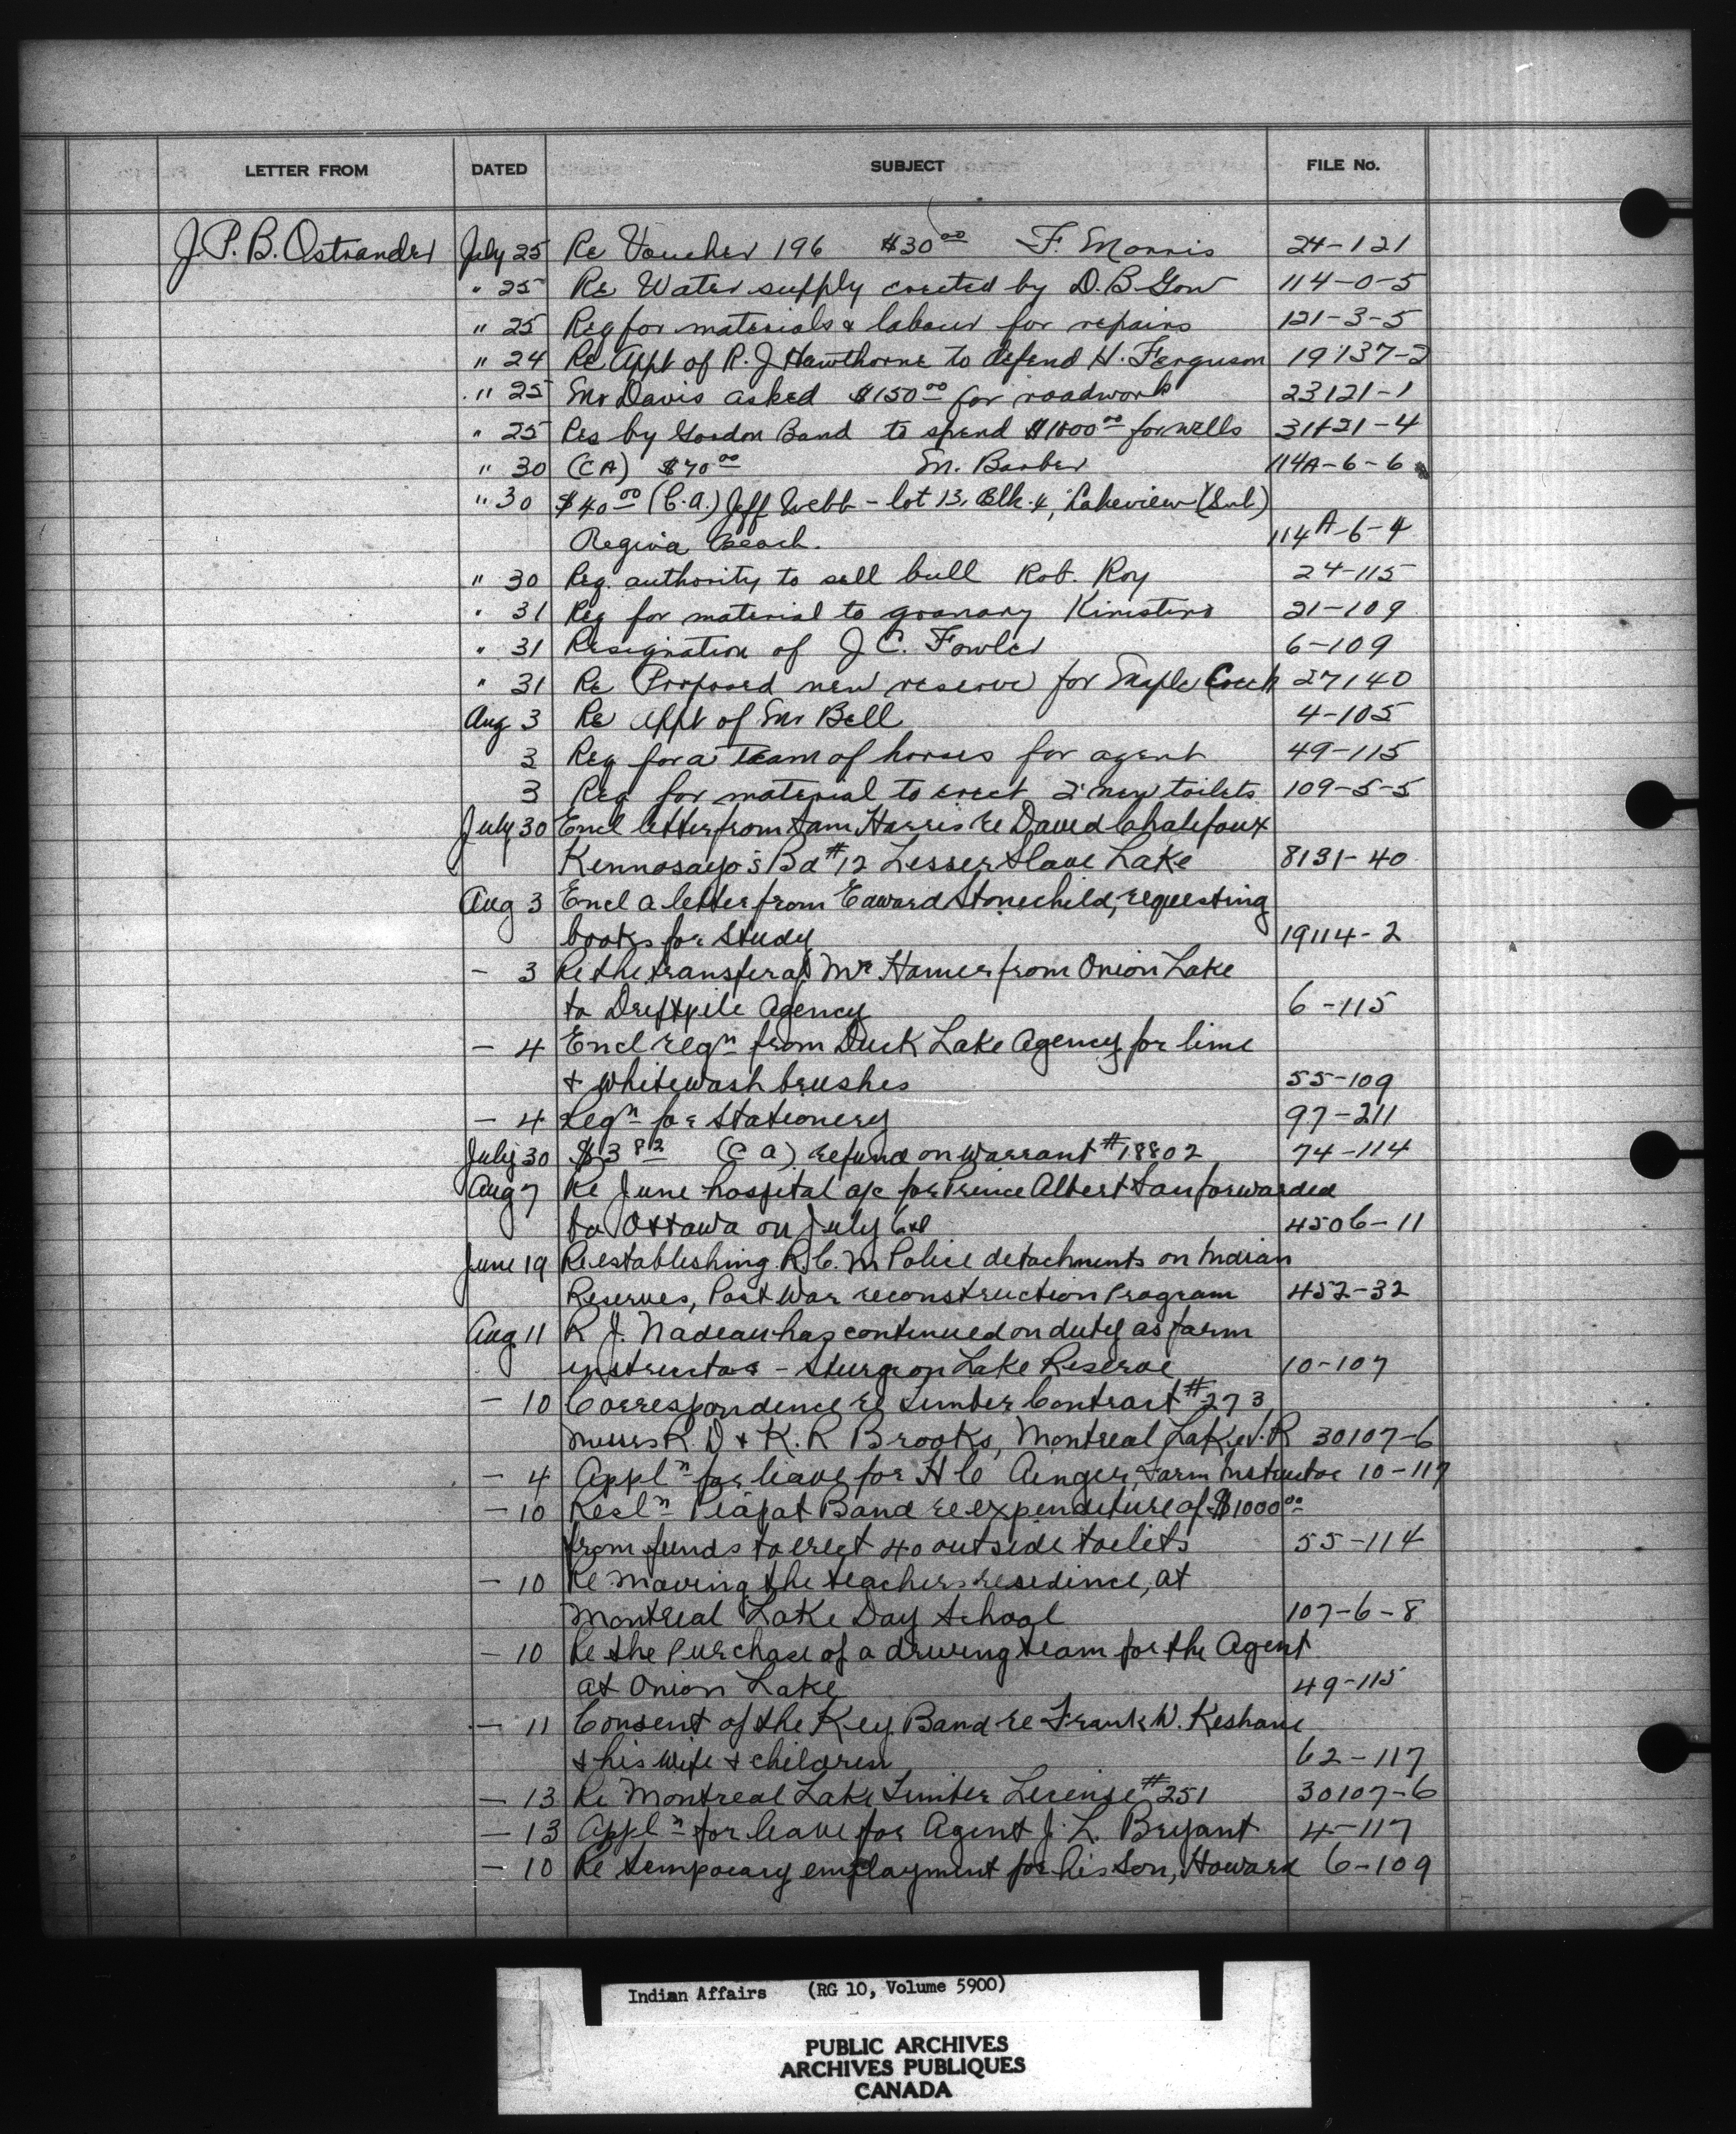 LETTER FROM DATED SUBJECT FILE No.
J.P.B. Ostrander July 25 Re Voucher 196 $30 00 F. Morris 24-121
" 25 Re Water supply erected by D.B. Gow 114-0-5
" 25 Req for materials & labour for repairs 121-3-5
" 24 Re Appt of R. J Hawthorne to defend H. Ferguson 19137-2
" 25 Mr Davis asked $150 00 for roadwork 23121-1
" 25 Res by Gordon Band to spend $1000 00 for wells 31121-4
" 30 (CA) $70 00 M. Barber 114A-6-6
" 30 $40 00 (C.A.) Jeff Webb - lot 13, Blk. 4, Lakeview (Sub)
Regina Beach. 114A-6-4
" 30 Req. authority to sell bull Rob. Roy 24-115
" 31 Req for material to granary Kinistino 21-109
" 31 Resignation of J C. Fowler 6-109
" 31 Re Proposed new reserve for Maple Creek 27140
Aug 3 Re Appt of Mr Bell 4-105
3 Req for a team of horses for agent 49-115
3 Req for material to erect 2 new toilets 109-5-5
July 30 Encl letter from Sam Harris re David Chalifoux
Kennosayo's Bd #12 Lesser Slave Lake 8131-40
Aug 3 Encl a letter from Edward Stonechild, requesting
books for study 19114-2
- 3 Re the transfer of Mr Hamer from Onion Lake
to Driftpile Agency 6-115
- 4 Encl reqn from Duck Lake Agency for lime
& whitewash brushes 55-109
- 4 Reqn for Stationery 97-211
July 30 $3 82 (C A) refund on warrant #18802 74-114
Aug 7 Re June hospital a/c for Prince Albert San forwarded
to Ottawa on July 6th 4506-11
June 19 Re establishing R.C.M Police detachments on Indian
Reserves, Post War reconstruction Program 452-32
Aug 11 R J. Nadeau has continued on duty as farm
instructor - Sturgeon Lake Reserve 10-107
- 10 Correspondence re Timber Contract #273
Messrs R. D & K. R Brooks, Montreal Lake I.R 30107-6
- 4 Appln for leave for H C Ainger, Farm Instructor 10-117
- 10 Resln Piapot Band re expenditure of $1000 00
from funds to erect 40 outside toilets 55-114
- 10 Re moving the teachers residence, at
Montreal Lake Day School 107-6-8
- 10 Re the purchase of a driving team for the Agent
at Onion Lake 49-115
- 11 Consent of the Key Band re Frank W. Keshane
& his wife & children 62-117
- 13 Re Montreal Lake Timber License #251 30107-6
- 13 Appln for leave for Agent J. L. Bryant 4-117
- 10 Re temporary employment for his son, Howard 6-109
Indian Affairs (RG 10, Volume 5900)
PUBLIC ARCHIVES
ARCHIVES PUBLIQUES
CANADA